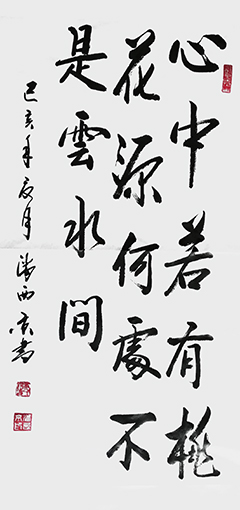 心中若有桃
花源何處不
是雲水間
己亥年夏月 西 書